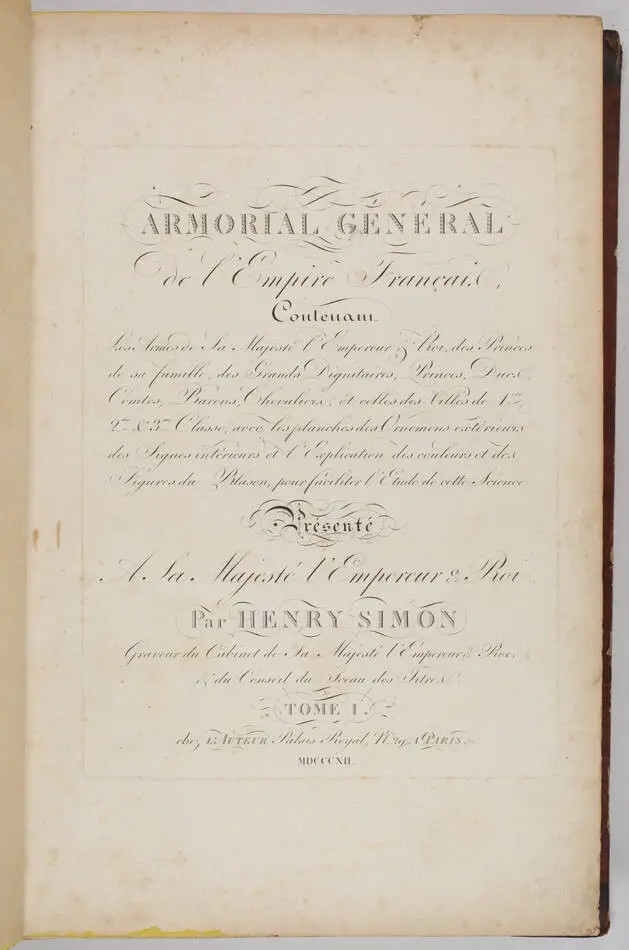 ARMORIAL GÉNÉRAL
de l'Empire Français,
Contenant
Les Armes de Sa Majesté l'Empereur & Roi, des Princes
de sa famille, des Grands Dignitaires, Princes, Ducs,
Comtes, Barons, Chevaliers, et celles des Villes de 1re,
2me & 3me Classe, avec les planches des Ornemens extérieurs
des Signes intérieurs et l'Explication des couleurs et des
Figures du Blason, pour faciliter l'Etude de cette Science
Présenté
A Sa Majesté l'Empereur & Roi
Par HENRY SIMON
Graveur du Cabinet de Sa Majesté l'Empereur & Roi,
& du Conseil du Sceau des Titres.
TOME I.
chez L'AUTEUR Palais Royal, N.° 29, A PARIS.
MDCCCXII.